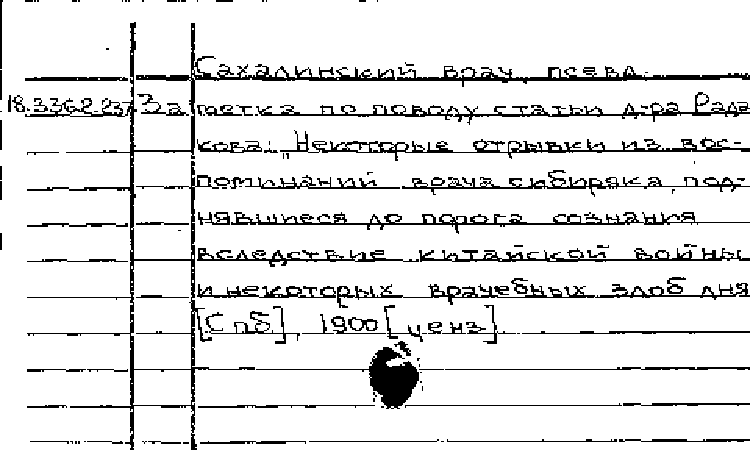 Сахалинский врач, псевд.
18.336.2.237 Заметка по поводу статьи д-ра Рада
кова: „Некоторые отрывки из вос-
поминаний врача сибиряка, под-
нявшиеся до порога сознания
вследствие китайской войны
и некоторых врачебных злоб дня
[Спб], 1900 [ценз].